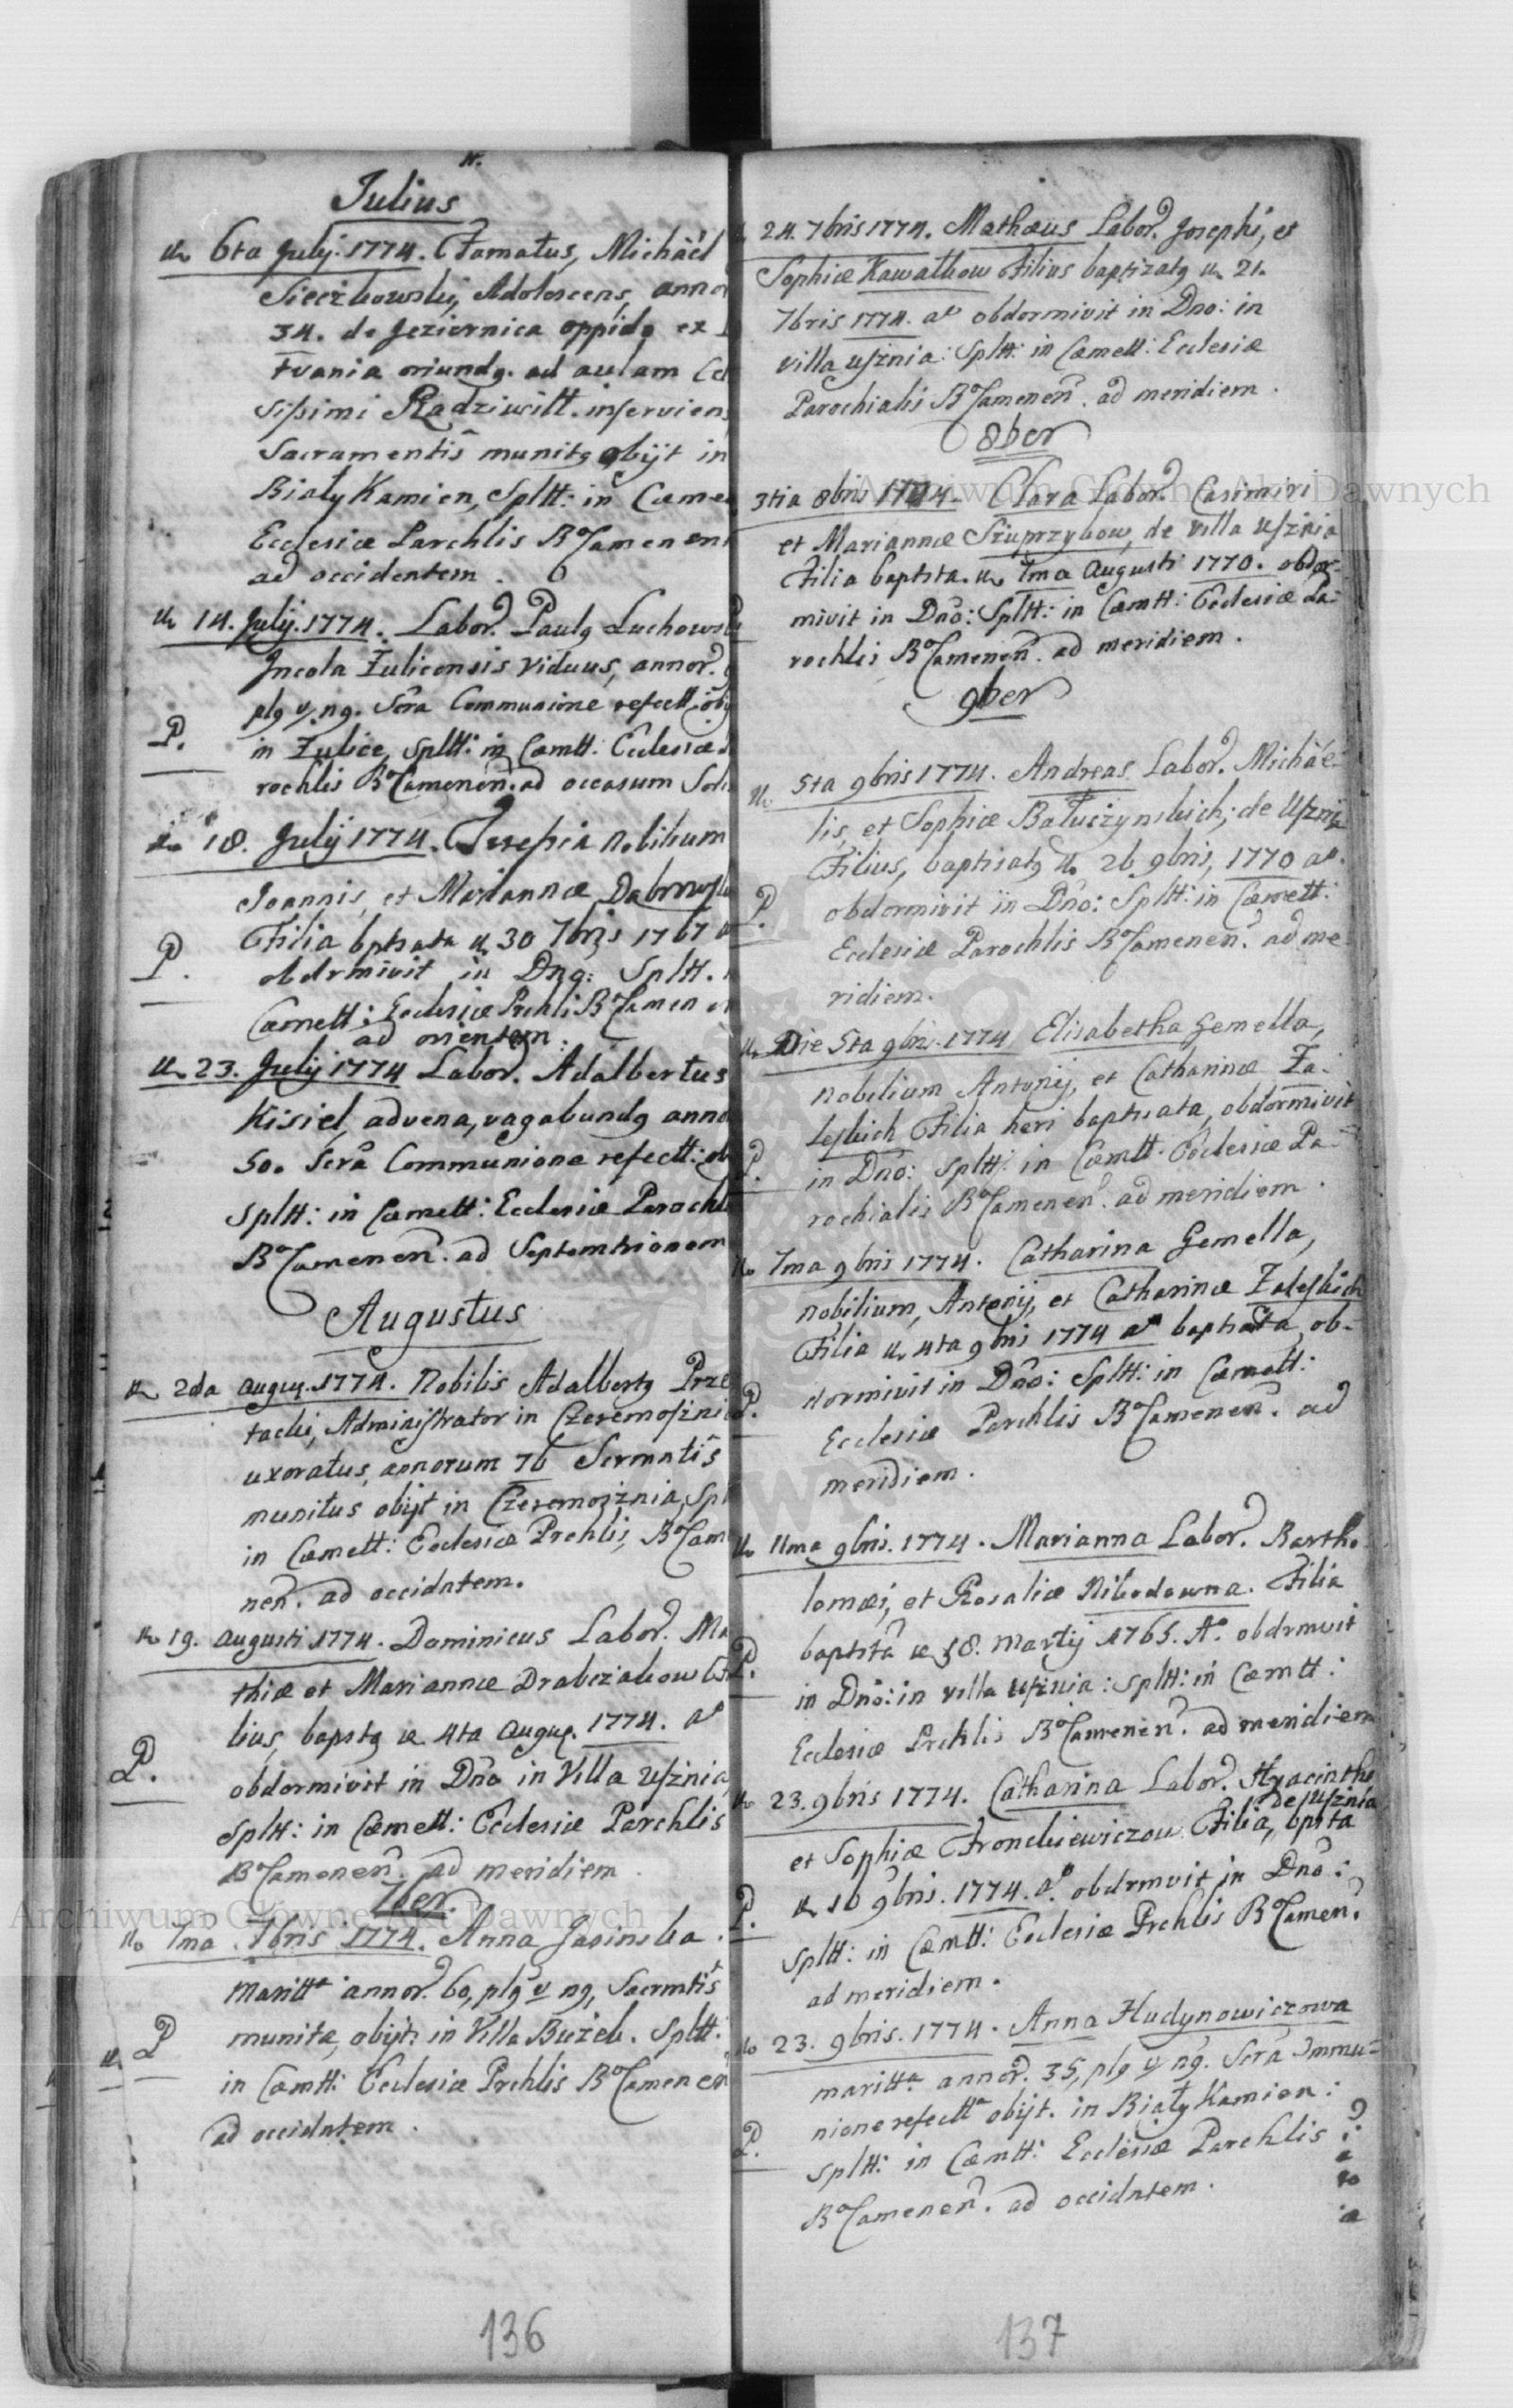 Julius
6ta Julij. 1774. Famatus, Michaël
Sieczkowskij, Adolescens, anno
34. de Jeziernica oppido ex
tvania oriundq. ad aulam Cel
sissimi Radziwill. inserviens
Sacramentis munitq obijt in
Biały Kamien, Spltt: in Cœme
Ecclesiæ Parchlis BCamenen
ad occidentem.
14. Julij. 1774. Labor. Paulq Luchows
Incola Zulicensis viduus, annor.
plq v nq. Scra Communione refectt: obij
P. in Zulice, Spltt: in Cœmtt: Ecclesiæ
rochlis BCamenen. ad occasum Solis
18. Julij 1774. Teresia nobilium
Joannis, et Mariannæ Dabrows
Filia bptsata 30 7bris 1767
P. obdrmivit in Dno: Spltt.
Cœmett: Ecclesiæ Prchlis BCamen
ad orientem.
23. Julij 1774 Labor. Adalbertus
Kisiel, advena, vagabundq anno
50. Scra Communione refectt: ob
Spltt: in Cœmett: Ecclesiæ Parochl
BCamenen. ad Septemtrionem
Augustus
2da Augus. 1774. Nobilis Adalbertq Prze
tacki, Administrator in Czeremoszni
uxoratus, annorum 76 Scrmntis
munitus obijt in Czeremosznia, Spl
in Cœmett: Ecclesiæ Prchlis, BCam
nen. ad occidntem.
19. Augusti 1774. Dominicus Labor. Ma
thiæ et Mariannæ Drabczakow Fi
lius, bapstq 4ta Augus. 1774. a°
P. obdormivit in Dno in Villa Uśznia
Spltt: in Cœmett: Ecclesiæ Parchlis
BCamenen. ad meridiem.
7ber.
7ma 7bris 1774. Anna Jasinska.
Maritta annor. 60, plq v nq, Sacrmtis
P munita, obijt in Villa Bużek. Spltt:
in Cœmtt: Ecclesiæ Prchlis BCamenen
ad occidntem.
136
24. 7bris 1774. Mathæus Labor. Josephi, et
Sophiæ Kawalkow Filius baptizatq 21.
7bris 1774. a° obdormivit in Dno: in
villa Uśznia: Spltt: in Cœmett: Ecclesiæ
Parochialis BCamenen. ad meridiem.
8ber
3tia 8bris 1774. Clara Labor. Casimiri
et Mariannæ Szuprzybow, de villa Uśznia
Filia baptsta. 7ma Augusti 1770. obdor
mivit in Dno: Spltt: in Cœmtt: Ecclesiæ Pa:
rochlis BCamenen. ad meridiem.
9ber
5ta 9bris 1774. Andreas Labor. Michaë-
lis, et Sophiæ Batuszynskich; de Uśznia
Filius, baptisatq 26 9bris, 1770 a°.
P. obdormivit in Dno: Spltt: in Cœmett:
Ecclesiæ Parochlis BCamenen. ad me
ridiem.
Die 5ta 9bris. 1774 Elisabetha Gemella,
nobilium Antonij, et Catharinæ Za-
leskich Filia heri baptisata, obdormivit
P. in Dno: Spltt: in Cœmtt: Ecclesiæ Pa-
rochialis BCamenen. ad meridiem.
7ma 9bris 1774. Catharina Gemella,
nobilium, Antonij, et Catharinæ Zaleskich
Filia 4ta 9bris 1774 a° baptsata, ob-
P. dormivit in Dno: Spltt: in Cœmett:
Ecclesiæ Parchlis BCamenen. ad
meridiem.
11ma 9bris. 1774. Marianna Labor. Bartho
lomæi, et Rosaliæ Nikodowna. Filia
P. baptsta 18. Martij 1765. A° obdrmvit
in Dno: in villa Uśznia: Spltt: in Cœmtt:
Ecclesiæ Prchlis BCamenen. ad meridiem
23. 9bris 1774. Catharina Labor. Hyacinthi
de Uśznia
et Sophiæ Fronckiewiczow Filia, bpsta
P. 16 9bris. 1774. a°. obdrmvit in Dno:
Spltt: in Cœmtt: Ecclesiæ Prchlis BCamen.
ad meridiem.
23. 9bris. 1774. Anna Hudynowiczowa
maritta. annor. 35, plq v nq. Scra Immu-
nione refectta obijt. in Biały Kamien:
P. Spltt: in Cœmtt: Ecclesiæ Parchlis
BCamenen. ad occidntem.
137
Archiwum Główne Akt Dawnych
Archiwum Główne Akt Dawnych